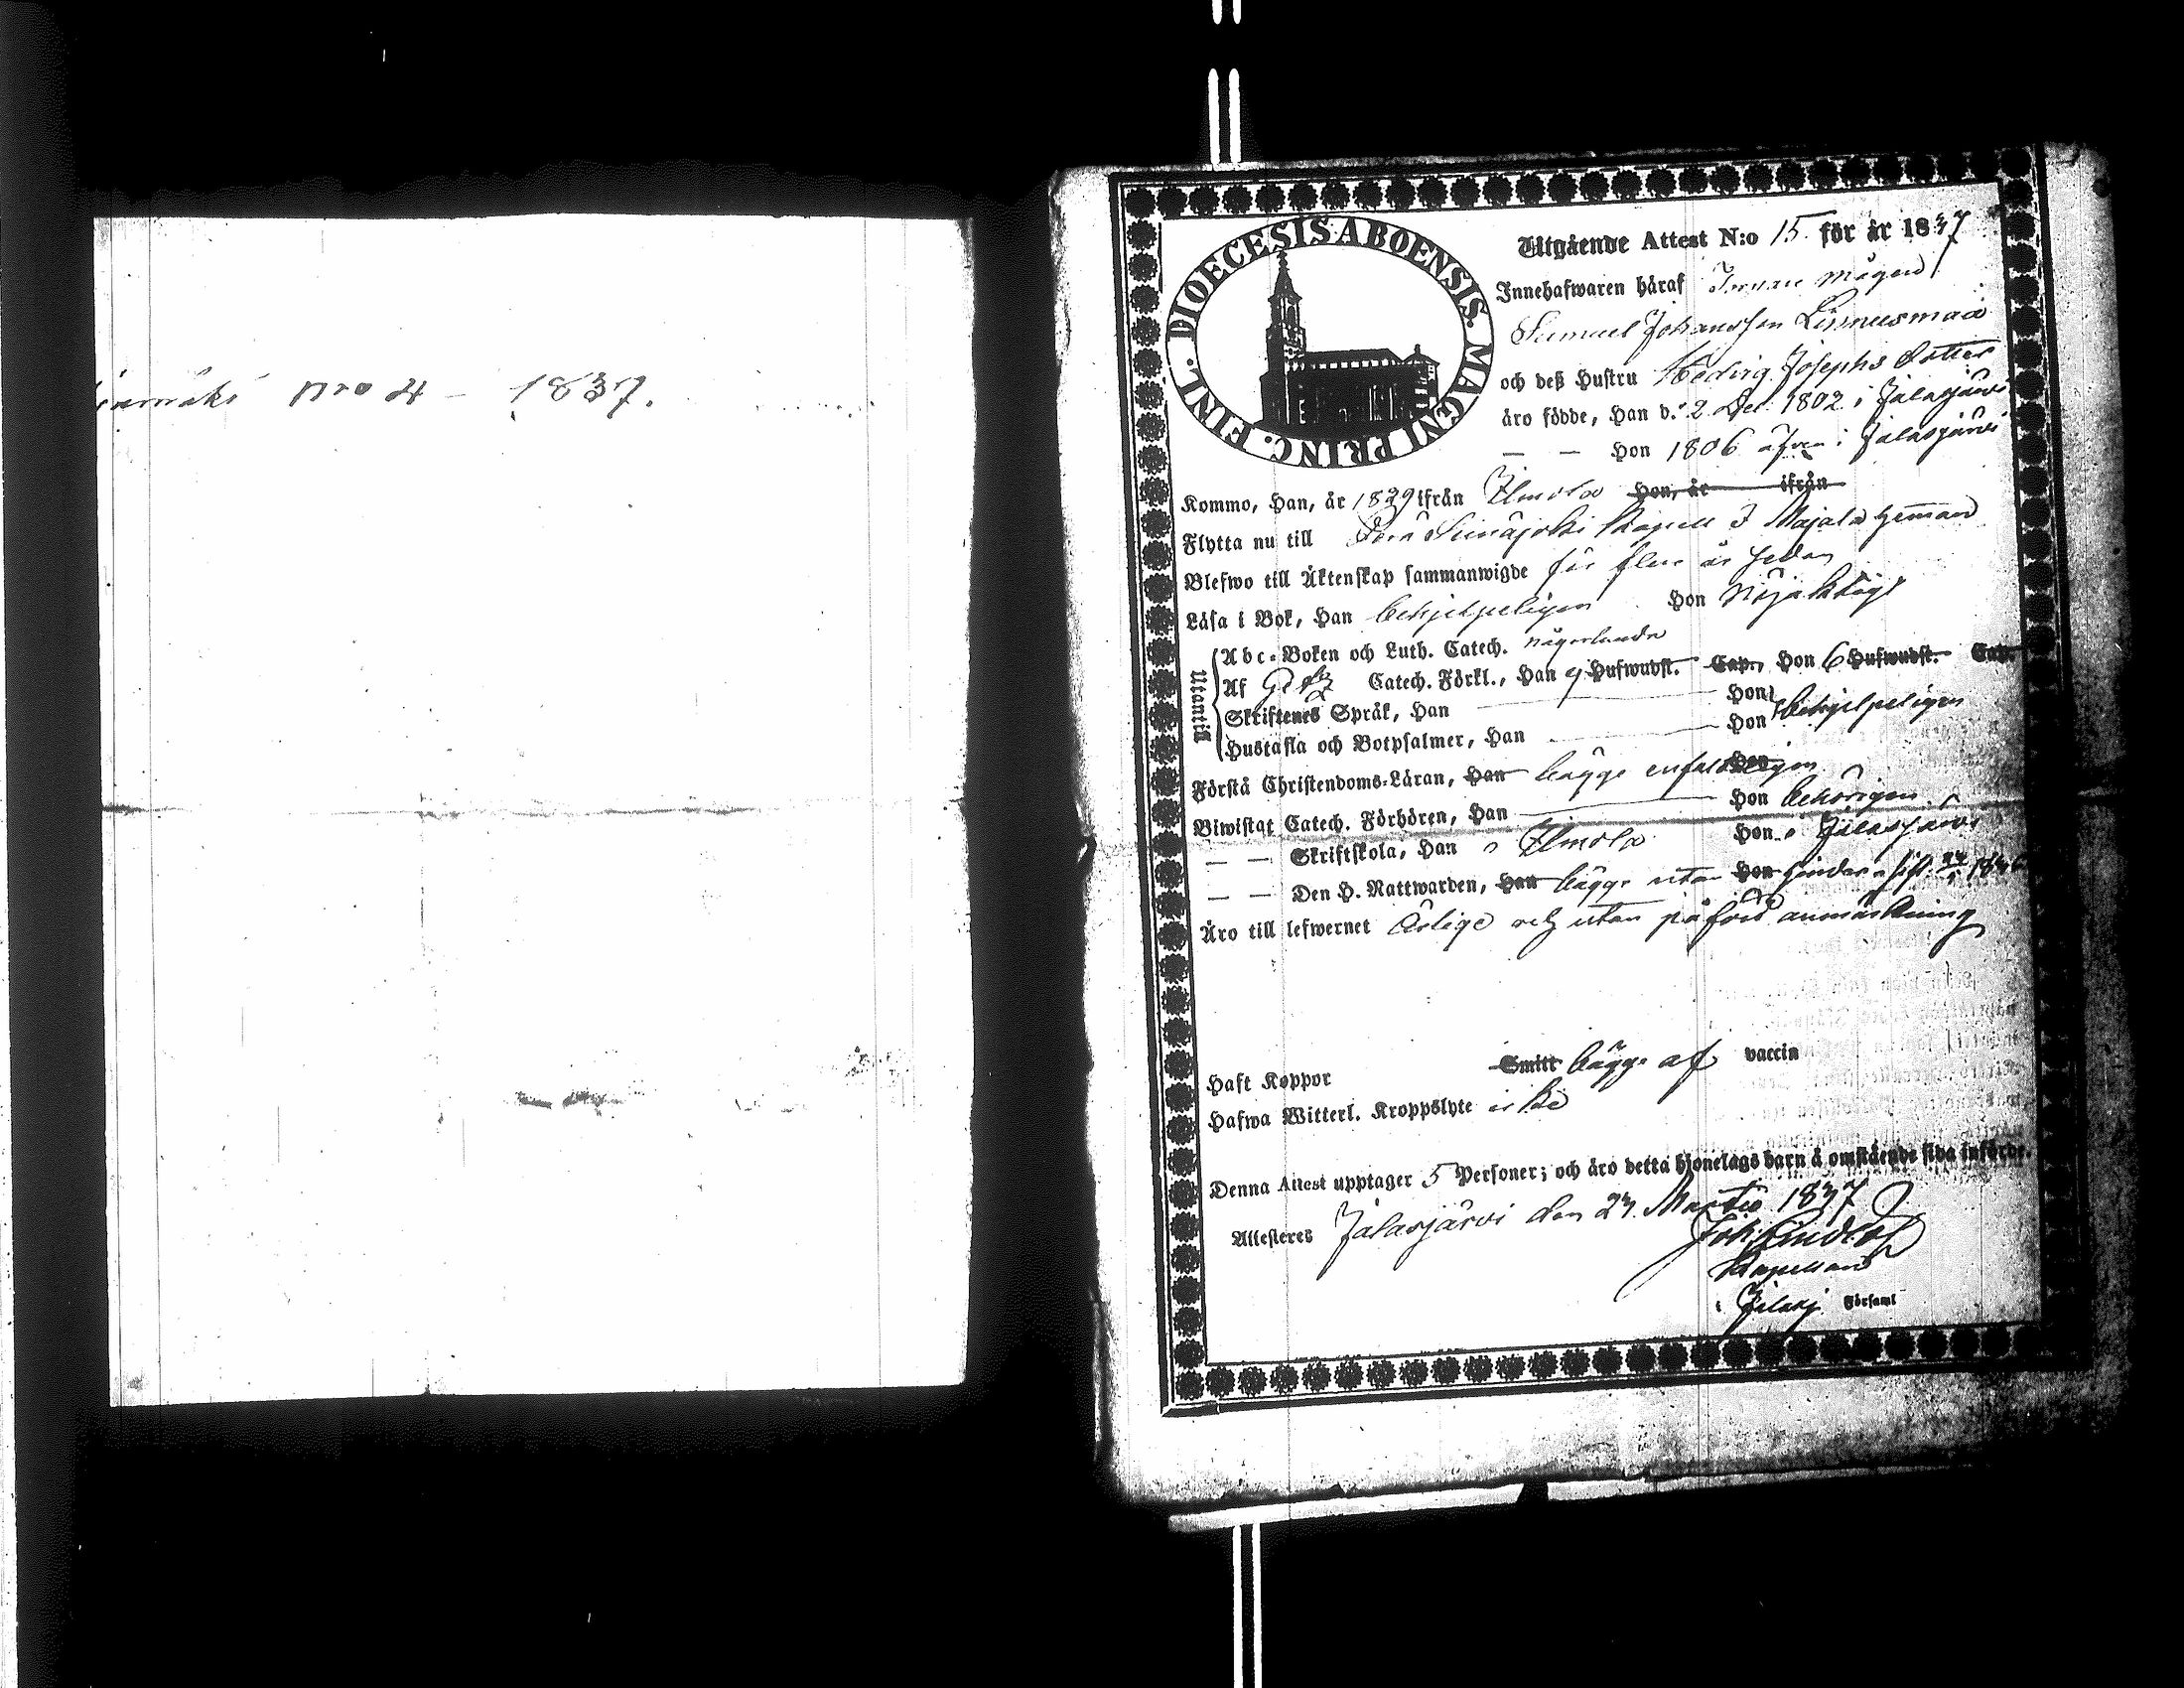 nro 4 - 1837.
DIOECESIS ABOENSIS. MAGNI PRINC. FINL.
Utgående Attest N:o 15 för år 1837
Innehafwaren häraf Inhare mågen
Samuel Johansson
och deß Hustru Hedvig Josephs dotter
äro födde, Han d. 2 Dec. 1802 i Jalasjärvi
— — Hon 1806 äfven i Jalasjärvi
Kommo, Han, år 1829 ifrån Ilmola Hon, år ifrån
Flytta nu till Kapell
Blefwo till Äktenskap sammanwigde för flere år sedan
Läsa i Bok, Han behjelpeligen Hon nöjaktigt
Utantill
Abc-Boken och Luth. Catech. någorlunda
Af Catech. Förkl., Han Hufwudst. Cap., Hon 6 Hufwudst. Cap.
Skriftenes Språk, Han — Hon
Hustafla och Botpsalmer, Han — Hon behjelpeligen
Förstå Christendoms-Läran, Han bägge enfaldeligen Hon
Biwistat Catech. Förhören, Han — Hon behörigen
— — Skriftskola, Han i Ilmola Hon i Jalasjärvi
— — Den H. Nattwarden, Han bägge utan Hon hinder
Äro till lefwernet ärlige och utan påförd anmärkning
Haft Koppor Smitt bägge af vaccin
Hafwa Witterl. Kroppslyte icke
Denna Attest upptager 5 Personer; och äro detta hjonelags barn å omstående sida införde.
Attesteres Jalasjärvi den 23 Martii 1837
Kapellan
i Jalasj. Församl